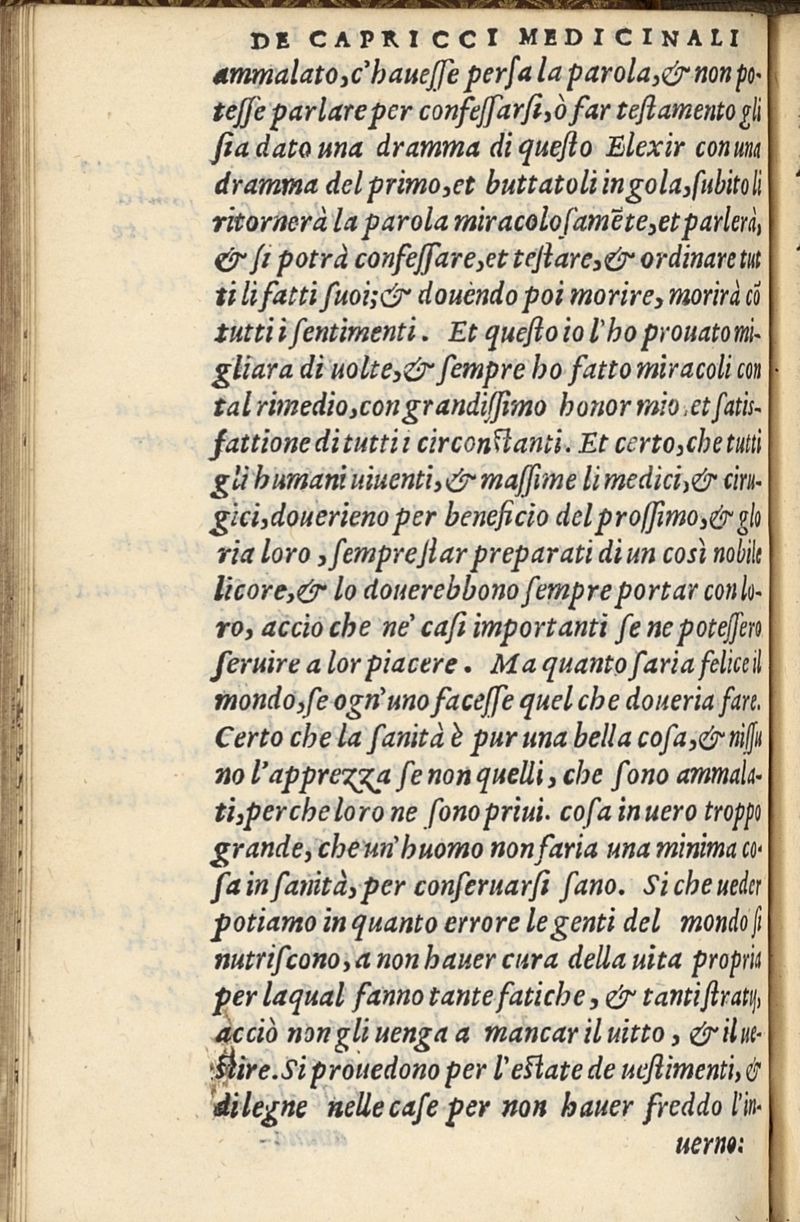 DE CAPRICCI MEDICINALI
ammalato, c'hauesse persa la parola, & non po-
tesse parlare per confessarsi, ò far testamento gli
sia dato una dramma di questo Elexir con una
dramma del primo, et buttatoli in gola, subito li
ritornerà la parola miracolosamēte, et parlerà,
& si potrà confessare, et testare, & ordinare tut
ti li fatti suoi; & douendo poi morire, morirà cō
tutti i sentimenti. Et questo io l'ho prouato mi-
gliara di uolte, & sempre ho fatto miracoli con
tal rimedio, con grandissimo honor mio, et satis-
fattione di tutti i circonstanti. Et certo, che tutti
gli humani uiuenti, & massime li medici, & ciru-
gici, douerieno per beneficio del prossimo, & glo
ria loro, sempre star preparati di un così nobile
licore, & lo douerebbono sempre portar con lo-
ro, accio che ne' casi importanti se ne potessero
seruire a lor piacere. Ma quanto saria felice il
mondo, se ogn'uno facesse quel che doueria fare.
Certo che la sanità è pur una bella cosa, & nissu
no l'apprezza se non quelli, che sono ammala-
ti, perche loro ne sono priui. cosa in uero troppo
grande, che un'huomo non faria una minima co-
sa in sanità, per conseruarsi sano. Si che ueder
potiamo in quanto errore le genti del mondo si
nutriscono, a non hauer cura della uita propria
per laqual fanno tante fatiche, & tanti stratij,
acciò non gli uenga a mancar il uitto, & il ue-
stire. Si prouedono per l'estate de uestimenti, &
di legne nelle case per non hauer freddo l'in-
uerno: